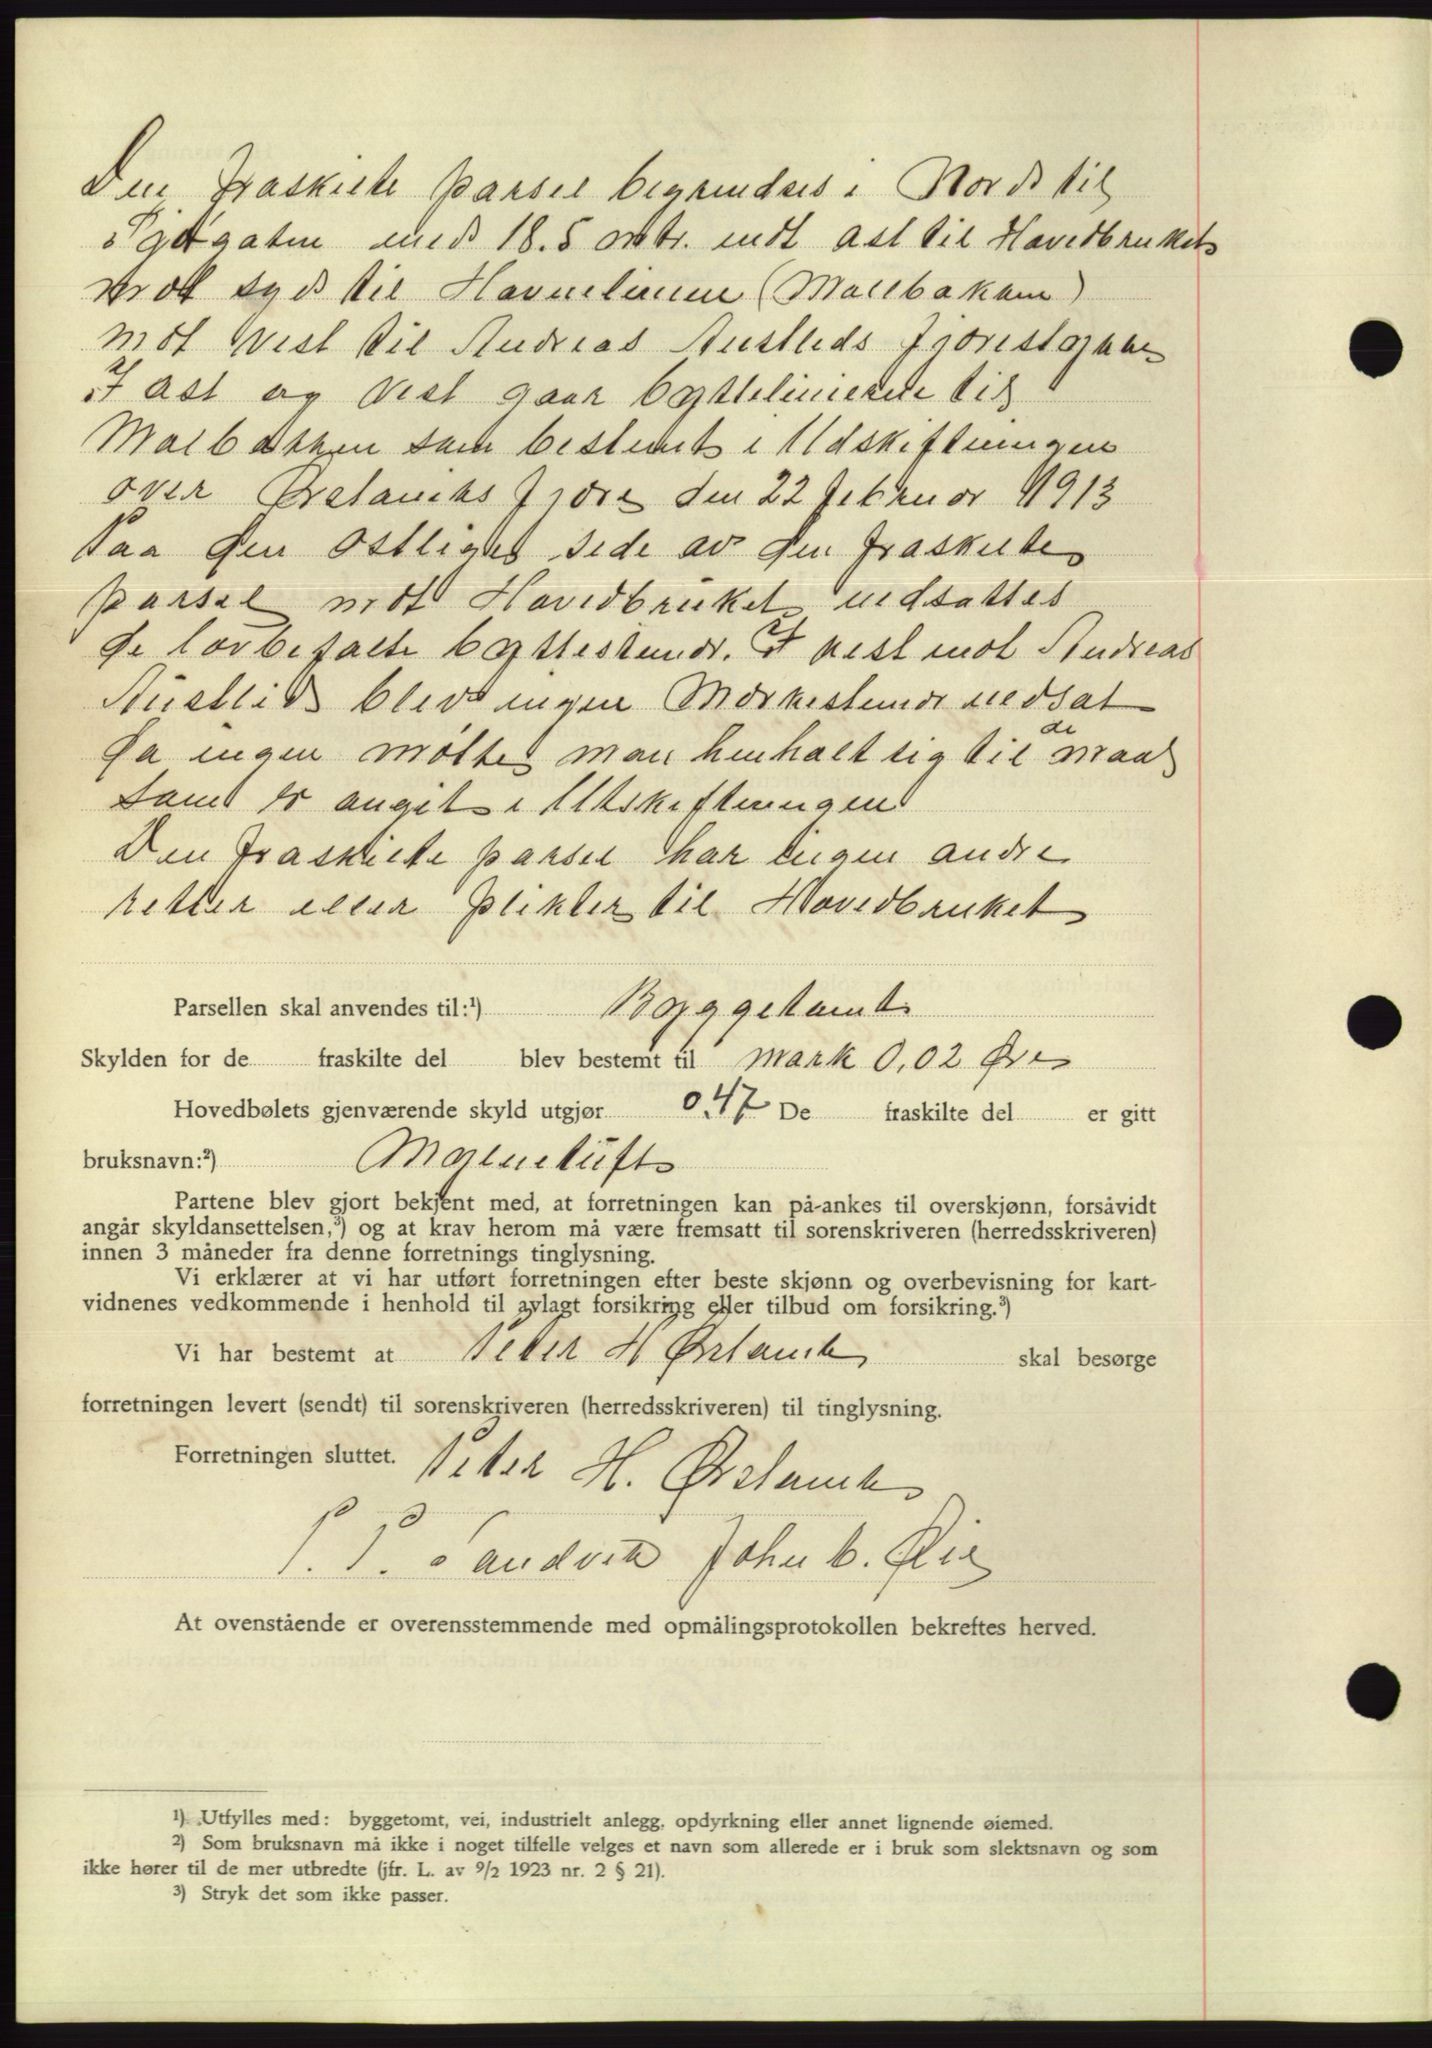 Den fraskilte parsel begrendses i Nord til
Sjøgaten med 18.5 mtr. mot ast til Hovedbruket
mot syd til Havnelinien (Marebakken)
mot vest til Andreas Austlids fjørestokker
I ast og vest gaar byttelinierne til
Marbakken som bestemt i Udskiftningen
over Ørstaviks fjøre den 22 februar 1913
Paa den østlige side av den fraskilte
parsel mot Hovedbruket nedsattes
de lovbefalte byttestener. I vest mot Andreas
Austlid blev ingen Merkestener nedsat
da ingen møtte man henholt sig til de maal
som er angit i Utskiftningen
Den fraskilte parsel har ingen andre
retter eller plikter til Hovedbruket
Parsellen skal anvendes til:¹) Byggetomt
Skylden for de fraskilte del blev bestemt til mark 0,02 Øre
Hovedbølets gjenværende skyld utgjør 0,47 De fraskilte del er gitt
bruksnavn:²)
Partene blev gjort bekjent med, at forretningen kan på-ankes til overskjønn, forsåvidt
angår skyldansettelsen,³) og at krav herom må være fremsatt til sorenskriveren (herredsskriveren)
innen 3 måneder fra denne forretnings tinglysning.
Vi erklærer at vi har utført forretningen efter beste skjønn og overbevisning for kart-
vidnenes vedkommende i henhold til avlagt forsikring eller tilbud om forsikring.³)
Vi har bestemt at Peter H Ørstavik skal besørge
forretningen levert (sendt) til sorenskriveren (herredsskriveren) til tinglysning.
Forretningen sluttet. Peter H. Ørstavik
P. P. Sandvik John C. Øie
At ovenstående er overensstemmende med opmålingsprotokollen bekreftes herved.
¹) Utfylles med: byggetomt, vei, industrielt anlegg, opdyrkning eller annet lignende øiemed.
²) Som bruksnavn må ikke i noget tilfelle velges et navn som allerede er i bruk som slektsnavn og som
ikke hører til de mer utbredte (jfr. L. av 9/2 1923 nr. 2 § 21).
³) Stryk det som ikke passer.